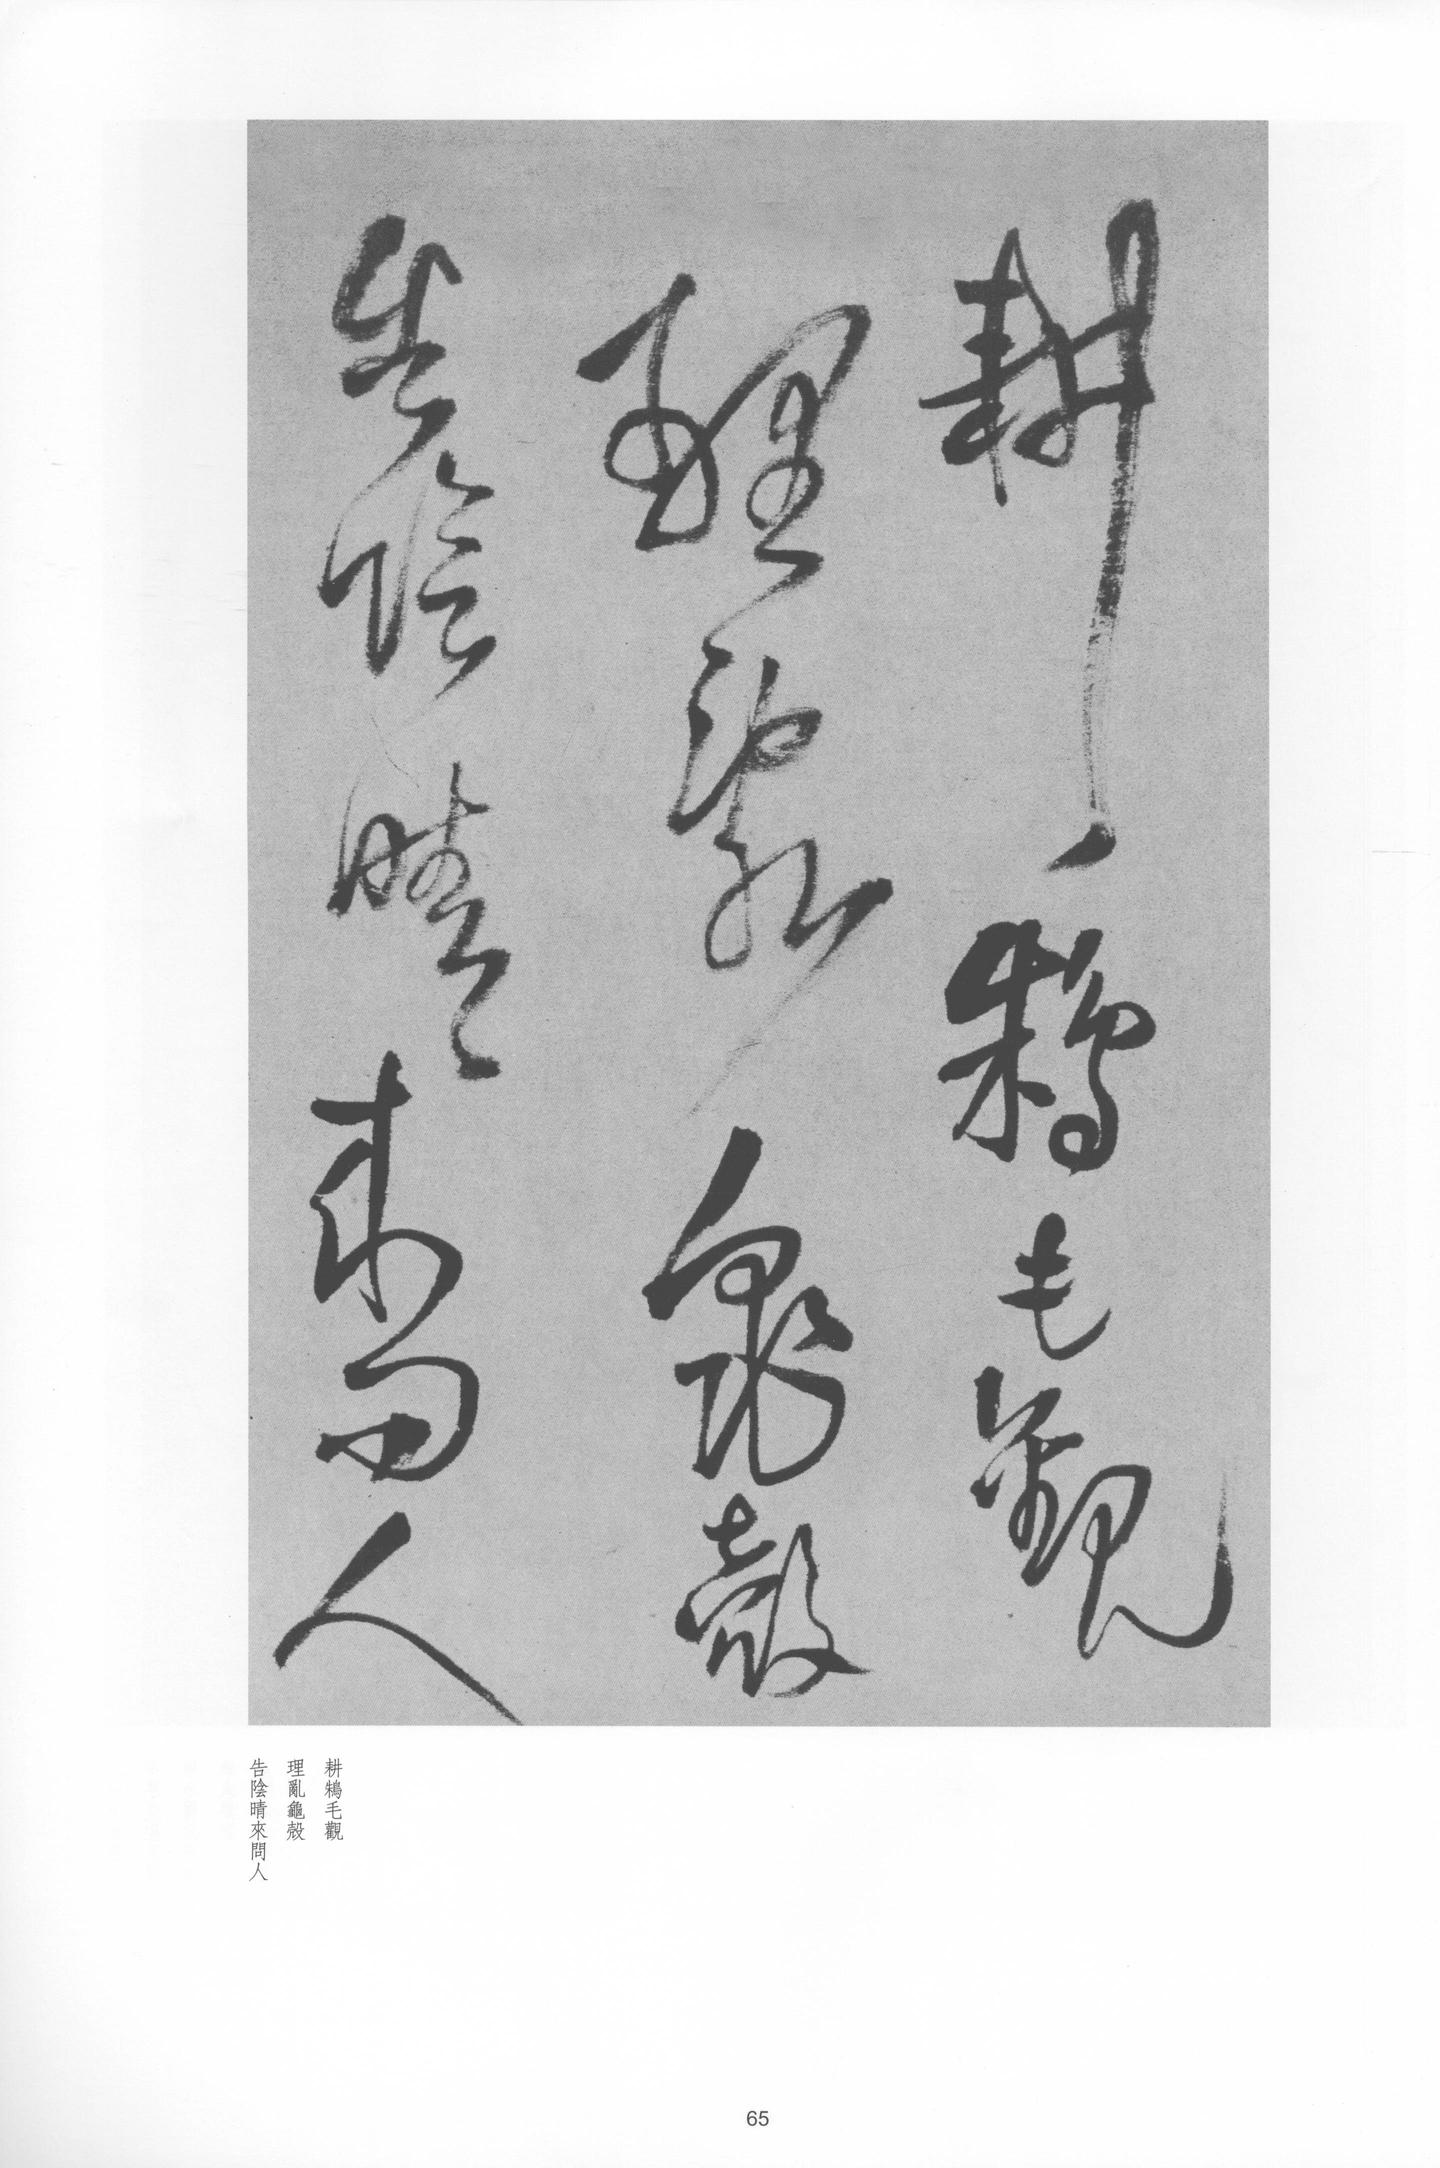 耕鵝毛觀
理亂龜殼
告陰晴來問人
耕鵝毛觀
理亂龜殼
告陰晴來問人
65